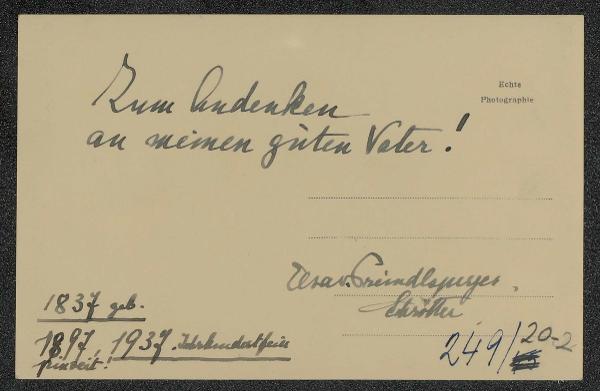 Echte
Photographie
Zum Andenken
an meinen guten Vater!
Schrötter
1837 geb.
1897, 1937 Jahrhundertfeier
249/20-2